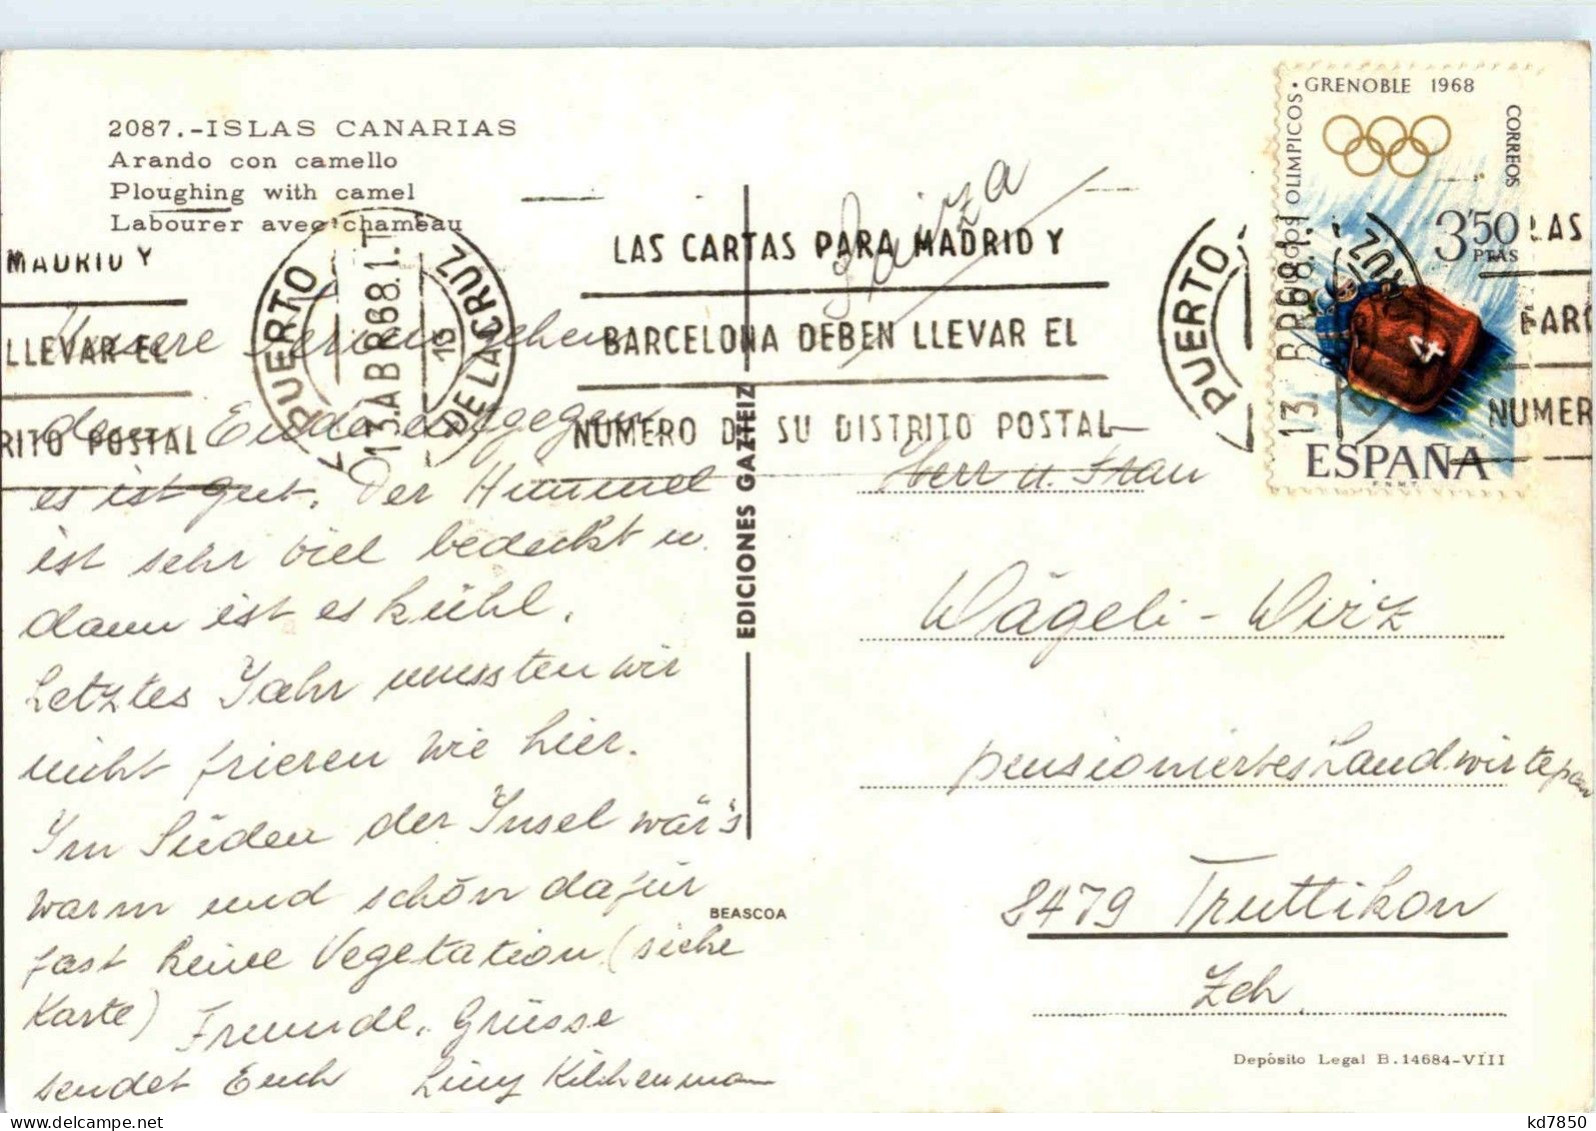 2087.-ISLAS CANARIAS
Arando con camello
Ploughing with camel
Labourer avec chameau
MADRID Y
LLEVAR EL
RITO POSTAL
PUERTO DE LA CRUZ
13.ABR68.1.T
13
LAS CARTAS PARA MADRID Y
BARCELONA DEBEN LLEVAR EL
NUMERO DE SU DISTRITO POSTAL
Unsere Ferien gehen
dem Ende entgegen
es ist gut. Der Himmel
ist sehr viel bedeckt u.
dann ist es kühl.
Letztes Jahr mussten wir
nicht frieren wie hier.
Im Süden der Insel wär's
warm und schön dafür
fast keine Vegetation (siehe
Karte) Freundl. Grüsse
sendet Euch
EDICIONES GAZTEIZ
BEASCOA
Suiza
PUERTO
CRUZ
GRENOBLE 1968
JUEGOS OLIMPICOS
CORREOS
3'50
PTAS
4
ESPAÑA
F.N.M.T.
LAS
BARC
NUMER
Herr u. Frau
Wägeli - Wirz
pensioniertes Landwirtepaar
8479 Truttikon
Zch
Depósito Legal B.14684-VIII
kd7850